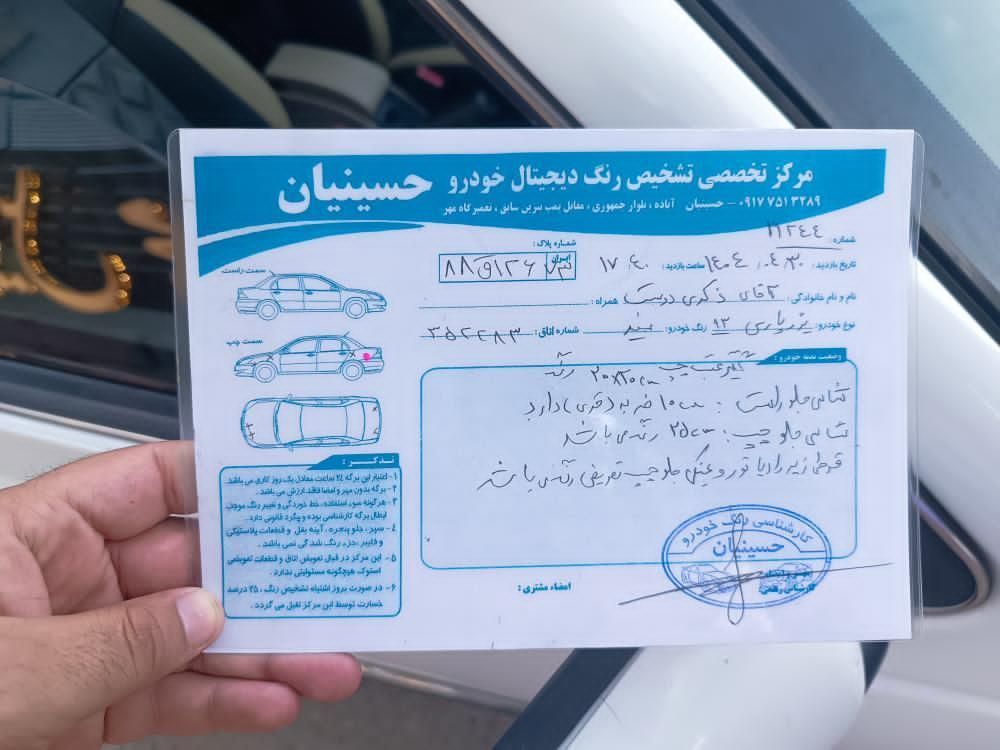 مرکز تخصصی تشخیص رنگ دیجیتال خودرو حسینیان
۰۹۱۷ ۷۵۱ ۳۲۸۹ – حسینیان آباده ، بلوار جمهوری ، مقابل پمپ بنزین سابق ، تعمیرگاه مهر
شماره : ۲۱۲۴۴
تاریخ بازدید : ۱۴۰۴ ، ۰۴ ، ۳۰ ساعت بازدید : ۱۷ : ۴۰
شماره پلاک :
ایران ۷۳ ۱۲۶ ق ۸۸
نام و نام خانوادگی : آقای ذکری دوست همراه :
نوع خودرو : پژو پارس ۹۳ رنگ خودرو : سفید شماره اتاق : ۳۵۲۴۸۳
سمت راست
سمت چپ
وضعیت بدنه خودرو :
گلگیر عقب چپ ۲۰×۲۰ cm رنگ
شاسی جلو راست : ۱۰ cm ضربه (قری) دارد
شاسی جلو چپ : ۲۵ cm رنگ می باشد
زیر رادیاتور و سینی جلو چپ تعویض رنگ می باشد
تذکر :
۱- اعتبار این برگه ۲۴ ساعت معادل یک روز کاری می باشد.
۲- برگه بدون مهر و امضا فاقد ارزش می باشد.
۳- هرگونه سوء استفاده، خط خوردگی و تغییر رنگ موجب
ابطال برگه کارشناسی بوده و پیگرد قانونی دارد.
۴- سپر ، جلو پنجره ، آینه بغل و قطعات پلاستیکی
و فایبر ،جزء رنگ شدگی نمی باشد.
۵- این مرکز در قبال تعویض اتاق و قطعات تعویضی
استوک هیچگونه مسئولیتی ندارد.
۶- در صورت بروز اشتباه تشخیص رنگ، ۲۵ درصد
خسارت توسط این مرکز تقبل می گردد.
امضاء مشتری :
کارشناسی رنگ خودرو
حسینیان